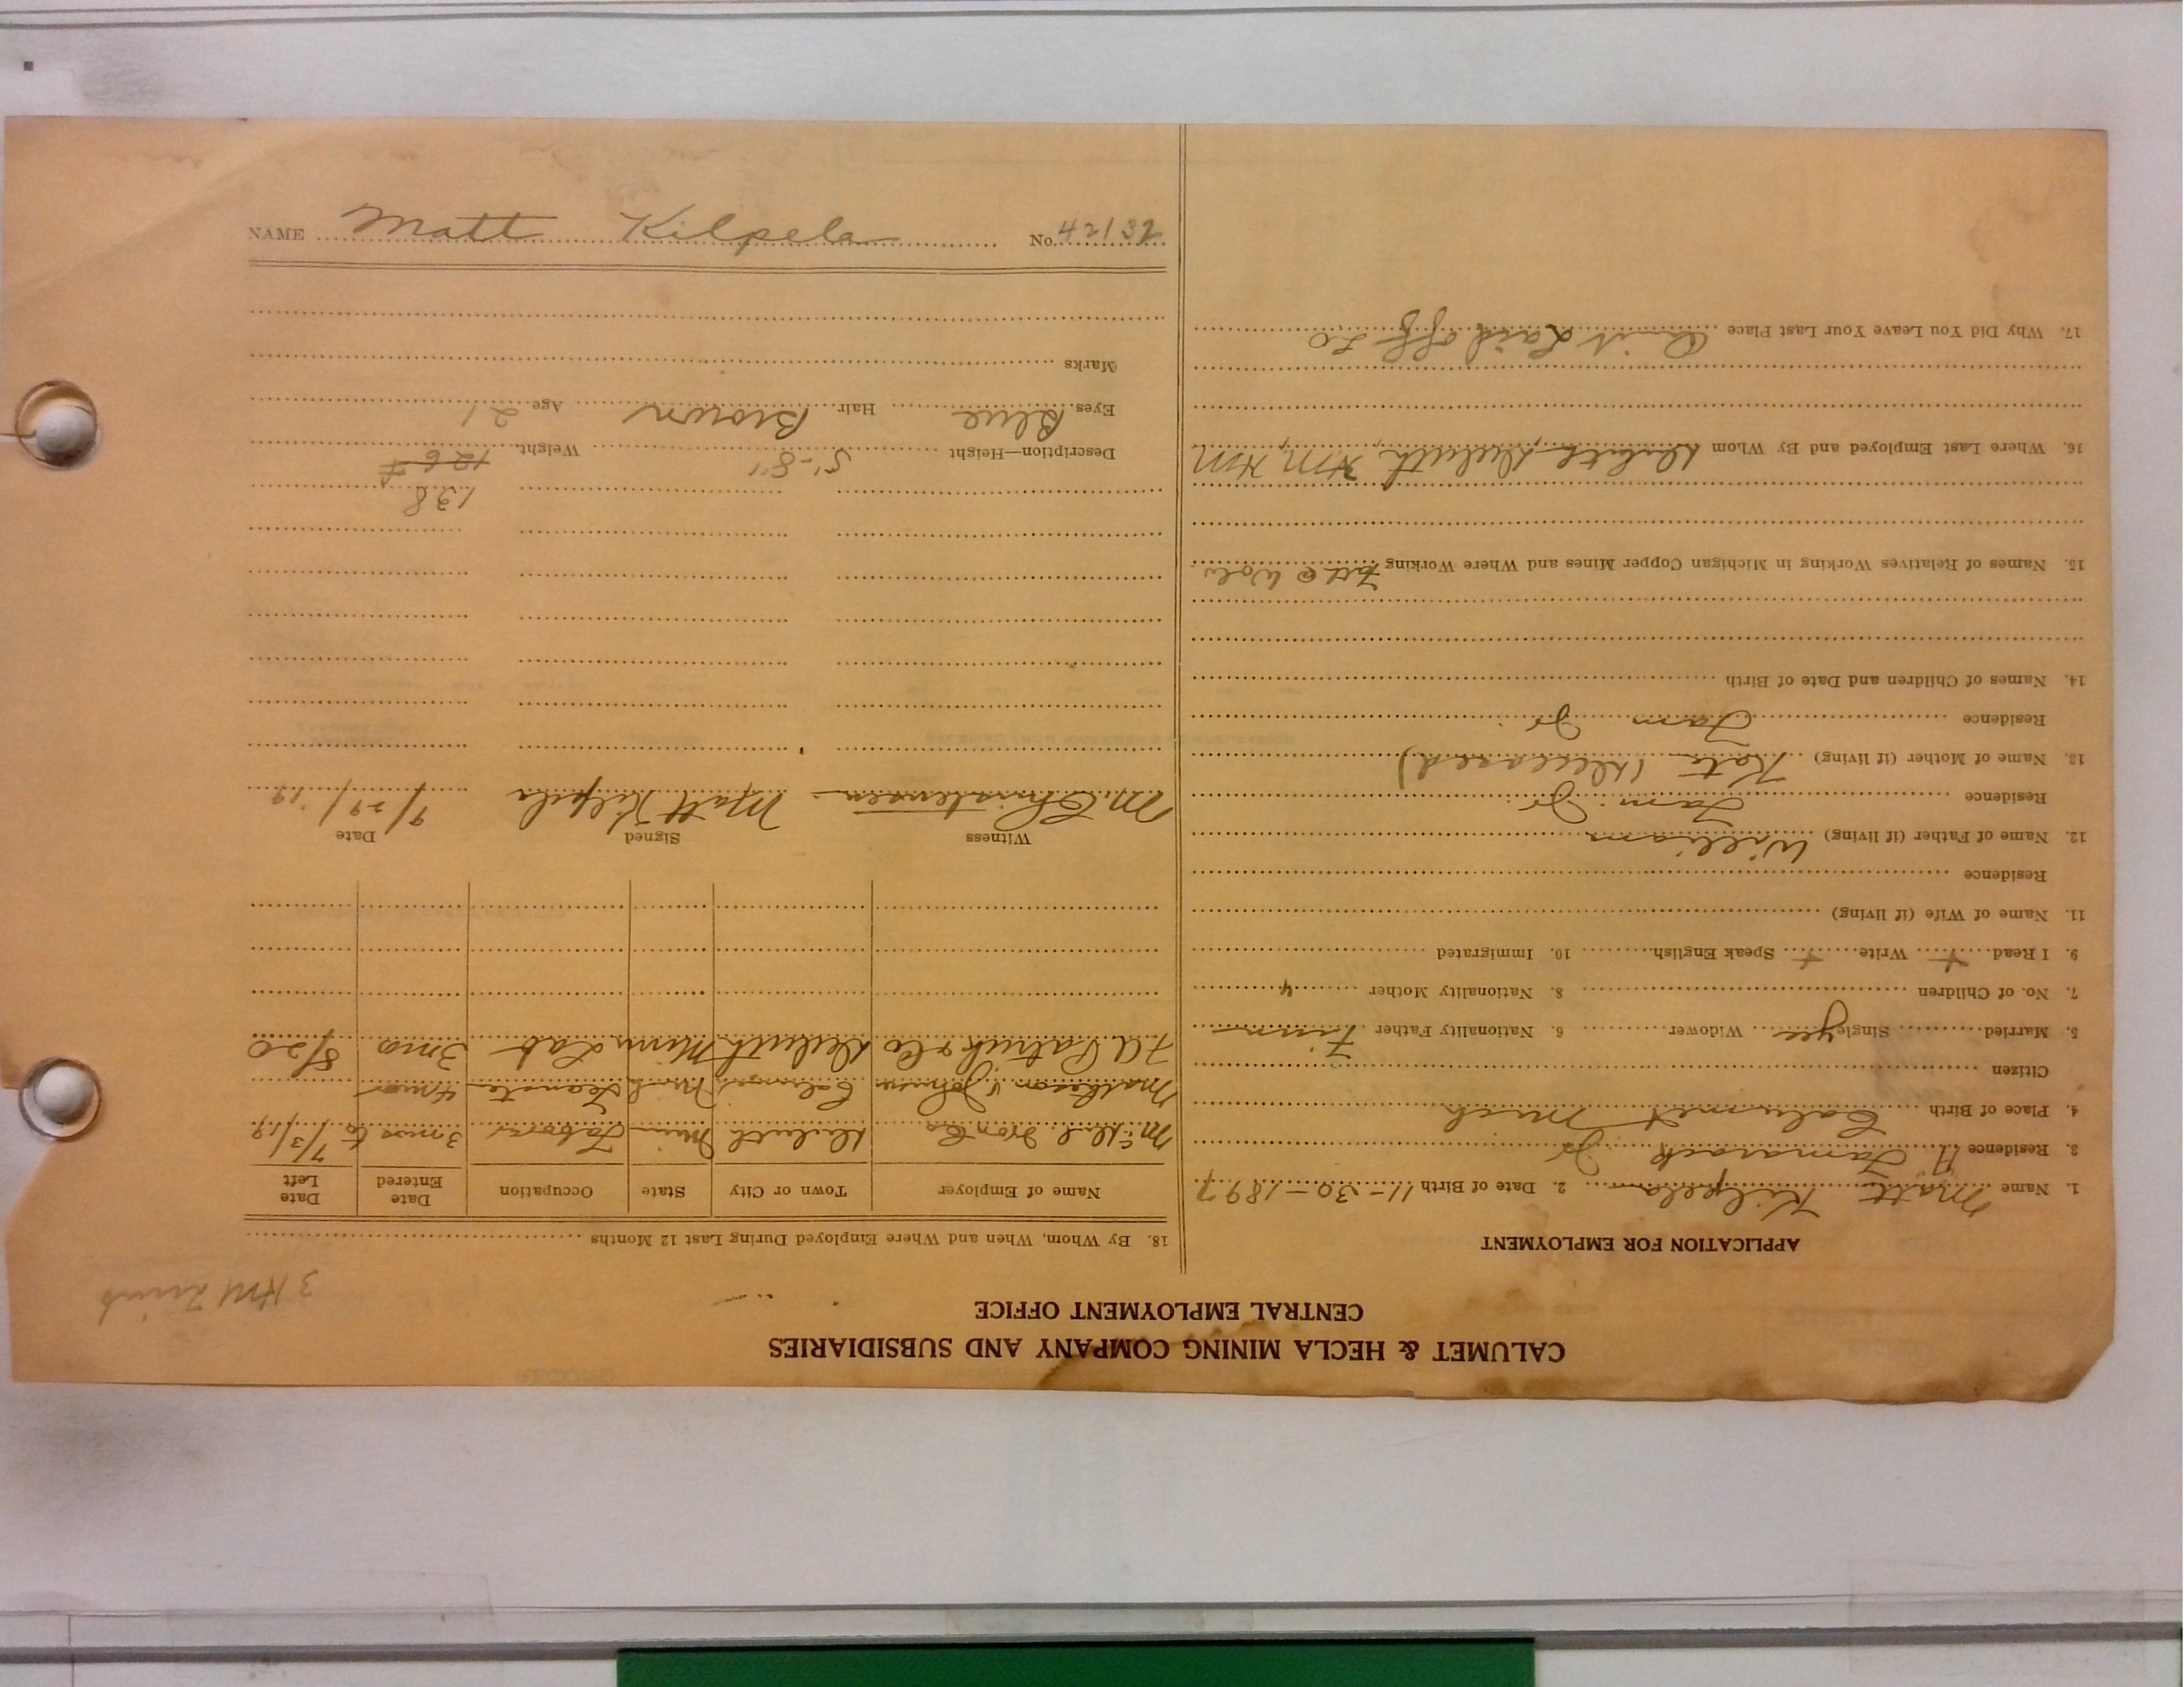 CALUMET & HECLA MINING COMPANY AND SUBSIDIARIES
CENTRAL EMPLOYMENT OFFICE
APPLICATION FOR EMPLOYMENT
1. Name Matt Kilpela 2. Date of Birth 11-30-1897
3. Residence Tamarack Jo
4. Place of Birth Calumet Mich
Citizen
5. Married Single yes Widower 6. Nationality Father Finn
7. No. of Children 8. Nationality Mother "
9. I Read + Write + Speak English 10. Immigrated
11. Name of Wife (if living)
Residence
12. Name of Father (if living) William
Residence Tam. Jo
13. Name of Mother (if living) Kate (deceased)
Residence Tam Jo
14. Names of Children and Date of Birth
15. Names of Relatives Working in Michigan Copper Mines and Where Working Fath @ Wolv
16. Where Last Employed and By Whom Duluth
17. Why Did You Leave Your Last Place Quit Laid off
3 HM
18. By Whom, When and Where Employed During Last 12 Months
Name of Employer Town or City State Occupation Date Entered Date Left
Iron Co Duluth Minn Labor 3 mos to 7/3/19
Mathieson & Johnson Calumet Mich Teamster 4 mos
F. A Patrick & Co Duluth Minn Lab 3 mo 8/20
Witness Signed Date
M. Christensen Matt Kilpela 9/29/19
138
Description—Height 5'-8" Weight 126 #
Eyes Blue Hair Brown Age 21
Marks
NAME Matt Kilpela No. 42132